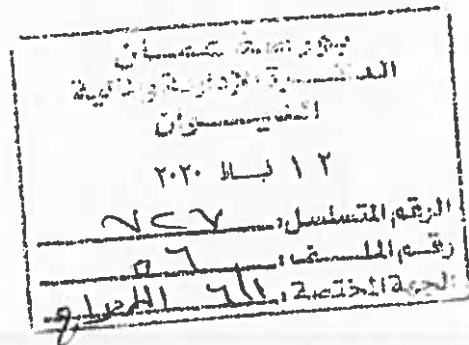 بورصة عمان
الدائرة الإدارية والمالية
الديوان
١٢ شباط ٢٠٢٠
الرقم المتسلسل: ٧٢٧
رقم الملف:
الجهة المختصة: